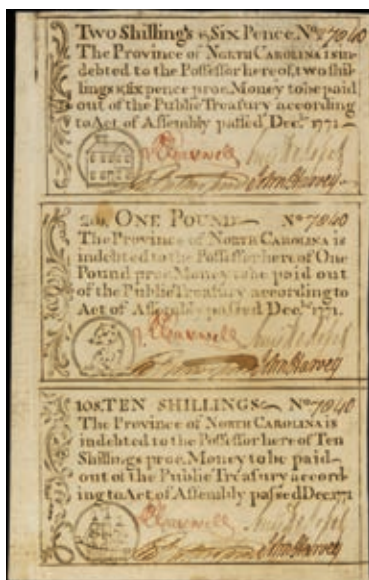 Two Shillings & Six Pence. No. 7040
The Province of NORTH CAROLINA is in-
debted to the Possessor hereof, two shil-
lings & six pence proc. Money to be paid
out of the Public Treasury according
to Act of Assembly passed Decr. 1771
John Harvey
20s. ONE POUND No 7040
The Province of NORTH CAROLINA is
indebted to the Possessor hereof One
Pound proc. Money to be paid out
of the Public Treasury according to
Act of Assembly passed Decr. 1771.
John Harvey
10s. TEN SHILLINGS No 7040
The Province of NORTH CAROLINA IS
indebted to the Possessor hereof Ten
Shillings proc. Money to be paid
out of the Public Treasury accord-
ing to Act of Assembly passed Dec. 1771
John Harvey